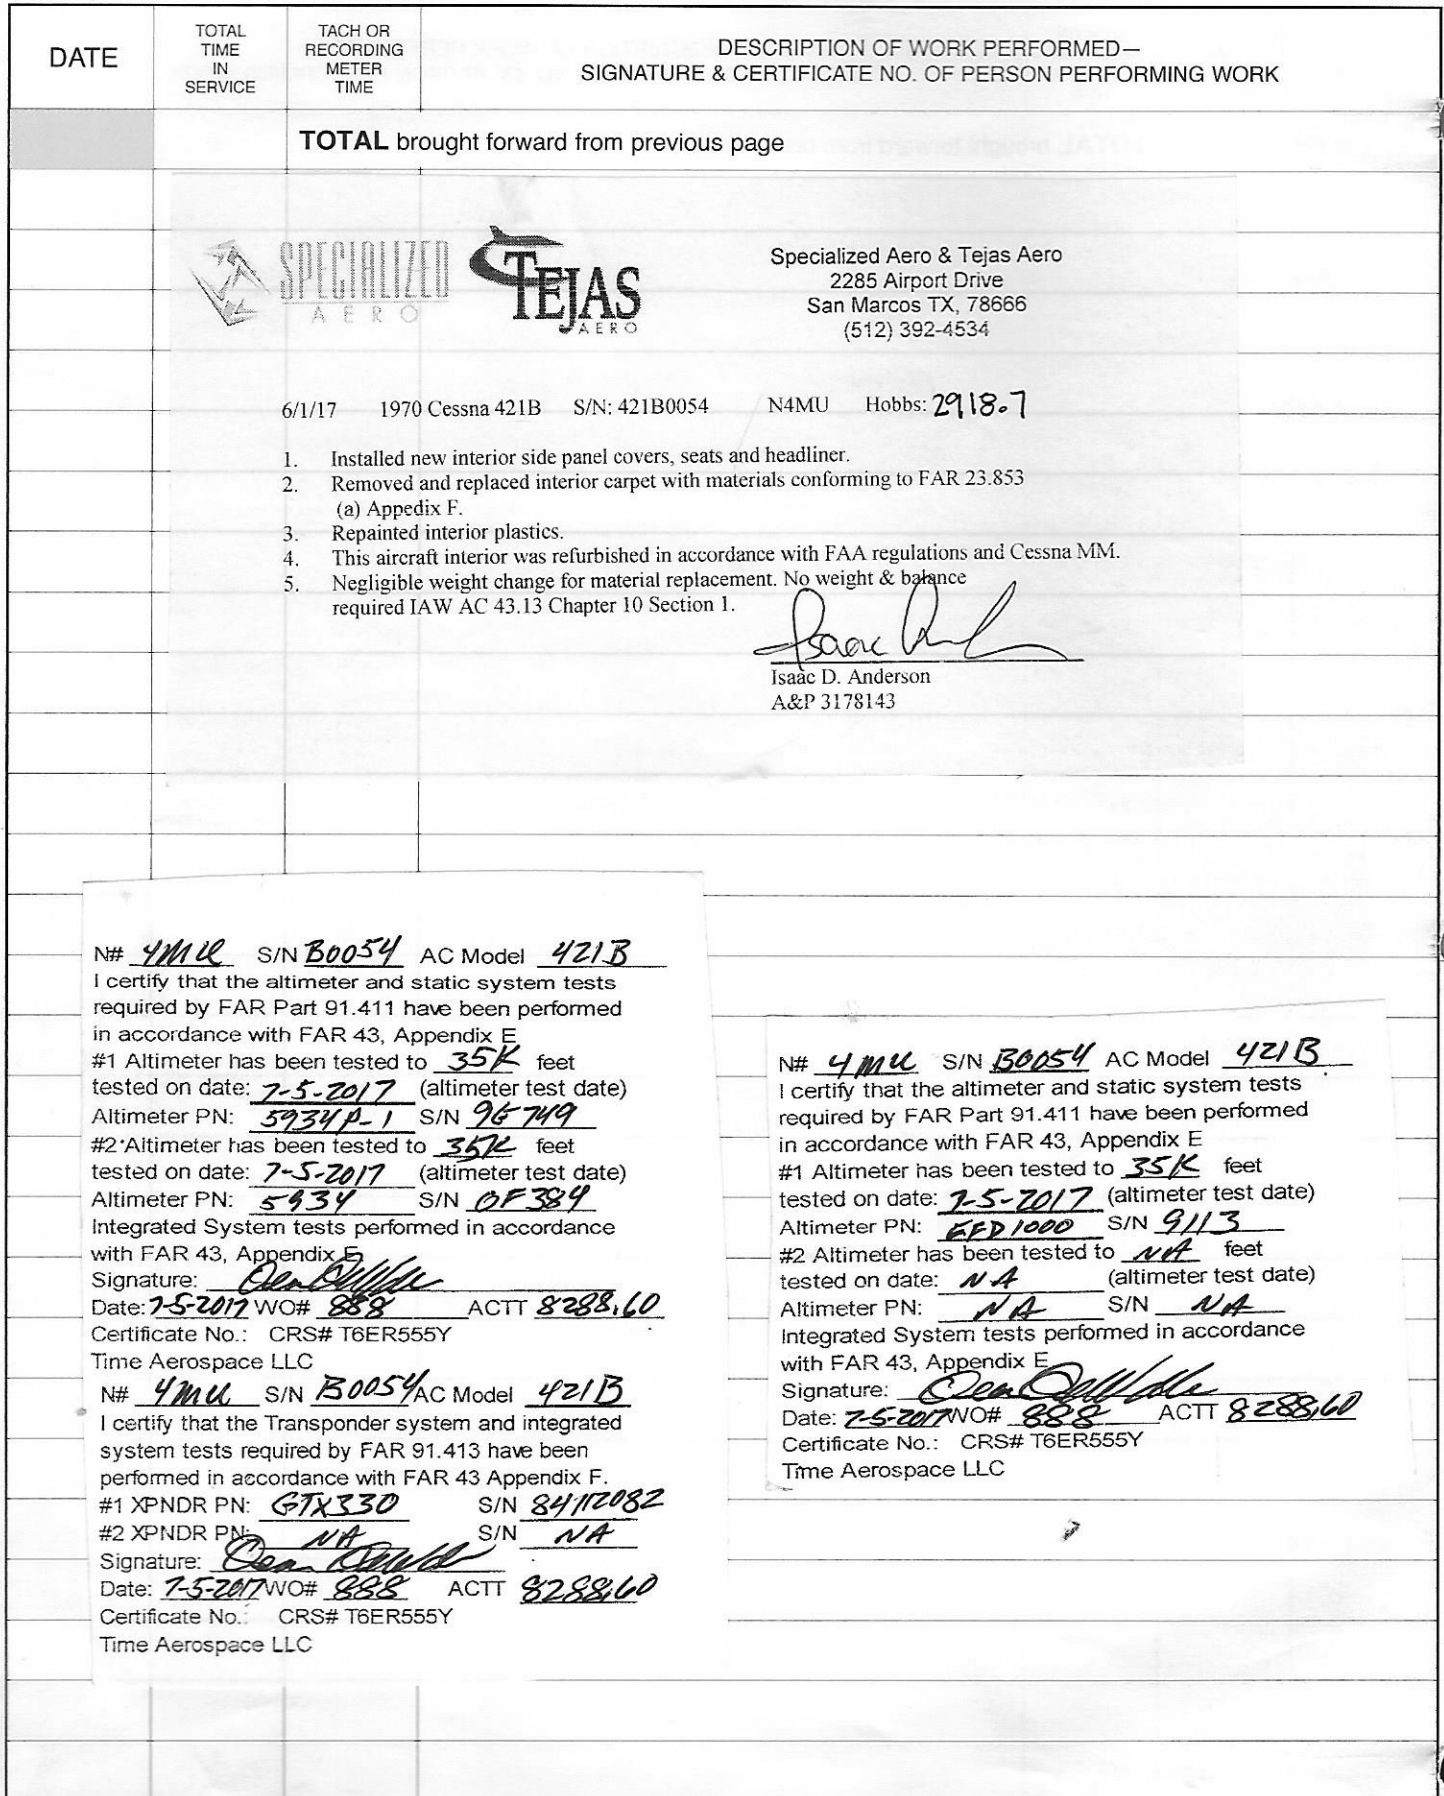 DATE
TOTAL
TIME
IN
SERVICE
TACH OR
RECORDING
METER
TIME
DESCRIPTION OF WORK PERFORMED—
SIGNATURE & CERTIFICATE NO. OF PERSON PERFORMING WORK
TOTAL brought forward from previous page
SPECIALIZED
AERO
TEJAS
AERO
Specialized Aero & Tejas Aero
2285 Airport Drive
San Marcos TX, 78666
(512) 392-4534
6/1/17 1970 Cessna 421B S/N: 421B0054 N4MU Hobbs: 2918.7
1. Installed new interior side panel covers, seats and headliner.
2. Removed and replaced interior carpet with materials conforming to FAR 23.853
(a) Appedix F.
3. Repainted interior plastics.
4. This aircraft interior was refurbished in accordance with FAA regulations and Cessna MM.
5. Negligible weight change for material replacement. No weight & balance
required IAW AC 43.13 Chapter 10 Section 1.
Isaac D. Anderson
A&P 3178143
N# 4MU S/N B0054 AC Model 421B
I certify that the altimeter and static system tests
required by FAR Part 91.411 have been performed
in accordance with FAR 43, Appendix E
#1 Altimeter has been tested to 35K feet
tested on date: 7-5-2017 (altimeter test date)
Altimeter PN: 5934P-1 S/N 9G749
#2 Altimeter has been tested to 35K feet
tested on date: 7-5-2017 (altimeter test date)
Altimeter PN: 5934 S/N 0F384
Integrated System tests performed in accordance
with FAR 43, Appendix E
Signature:
Date: 7-5-2017 WO# 888 ACTT 8288.60
Certificate No.: CRS# T6ER555Y
Time Aerospace LLC
N# 4MU S/N B0054 AC Model 421B
I certify that the Transponder system and integrated
system tests required by FAR 91.413 have been
performed in accordance with FAR 43 Appendix F.
#1 XPNDR PN: GTX330 S/N 84112082
#2 XPNDR PN: NA S/N NA
Signature:
Date: 7-5-2017 WO# 888 ACTT 8288.60
Certificate No.: CRS# T6ER555Y
Time Aerospace LLC
N# 4MU S/N B0054 AC Model 421B
I certify that the altimeter and static system tests
required by FAR Part 91.411 have been performed
in accordance with FAR 43, Appendix E
#1 Altimeter has been tested to 35K feet
tested on date: 7-5-2017 (altimeter test date)
Altimeter PN: EFD1000 S/N 9113
#2 Altimeter has been tested to NA feet
tested on date: NA (altimeter test date)
Altimeter PN: NA S/N NA
Integrated System tests performed in accordance
with FAR 43, Appendix E
Signature:
Date: 7-5-2017 WO# 888 ACTT 8288.60
Certificate No.: CRS# T6ER555Y
Time Aerospace LLC